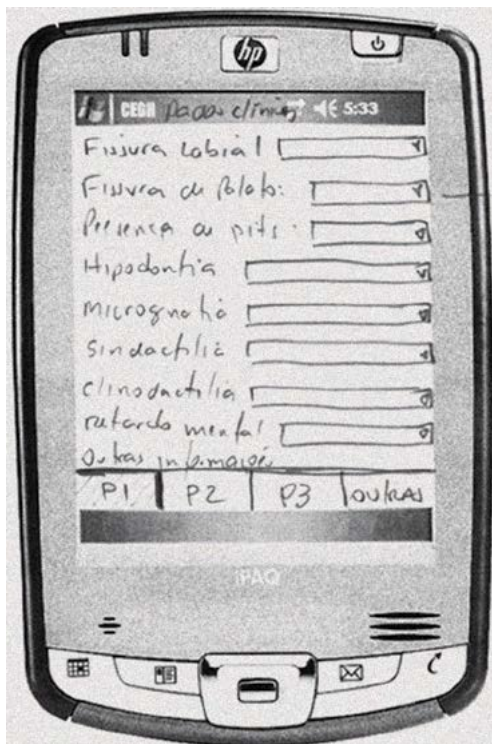 hp
CEGH Dados clínicos 5:33
Fissura Labial
Fissura de Palato:
Presença de pits:
Hipodontia
micrognatia
sindactilia
clinodactilia
retardo mental
Outras informações
P1 P2 P3 OUTRAS
iPAQ